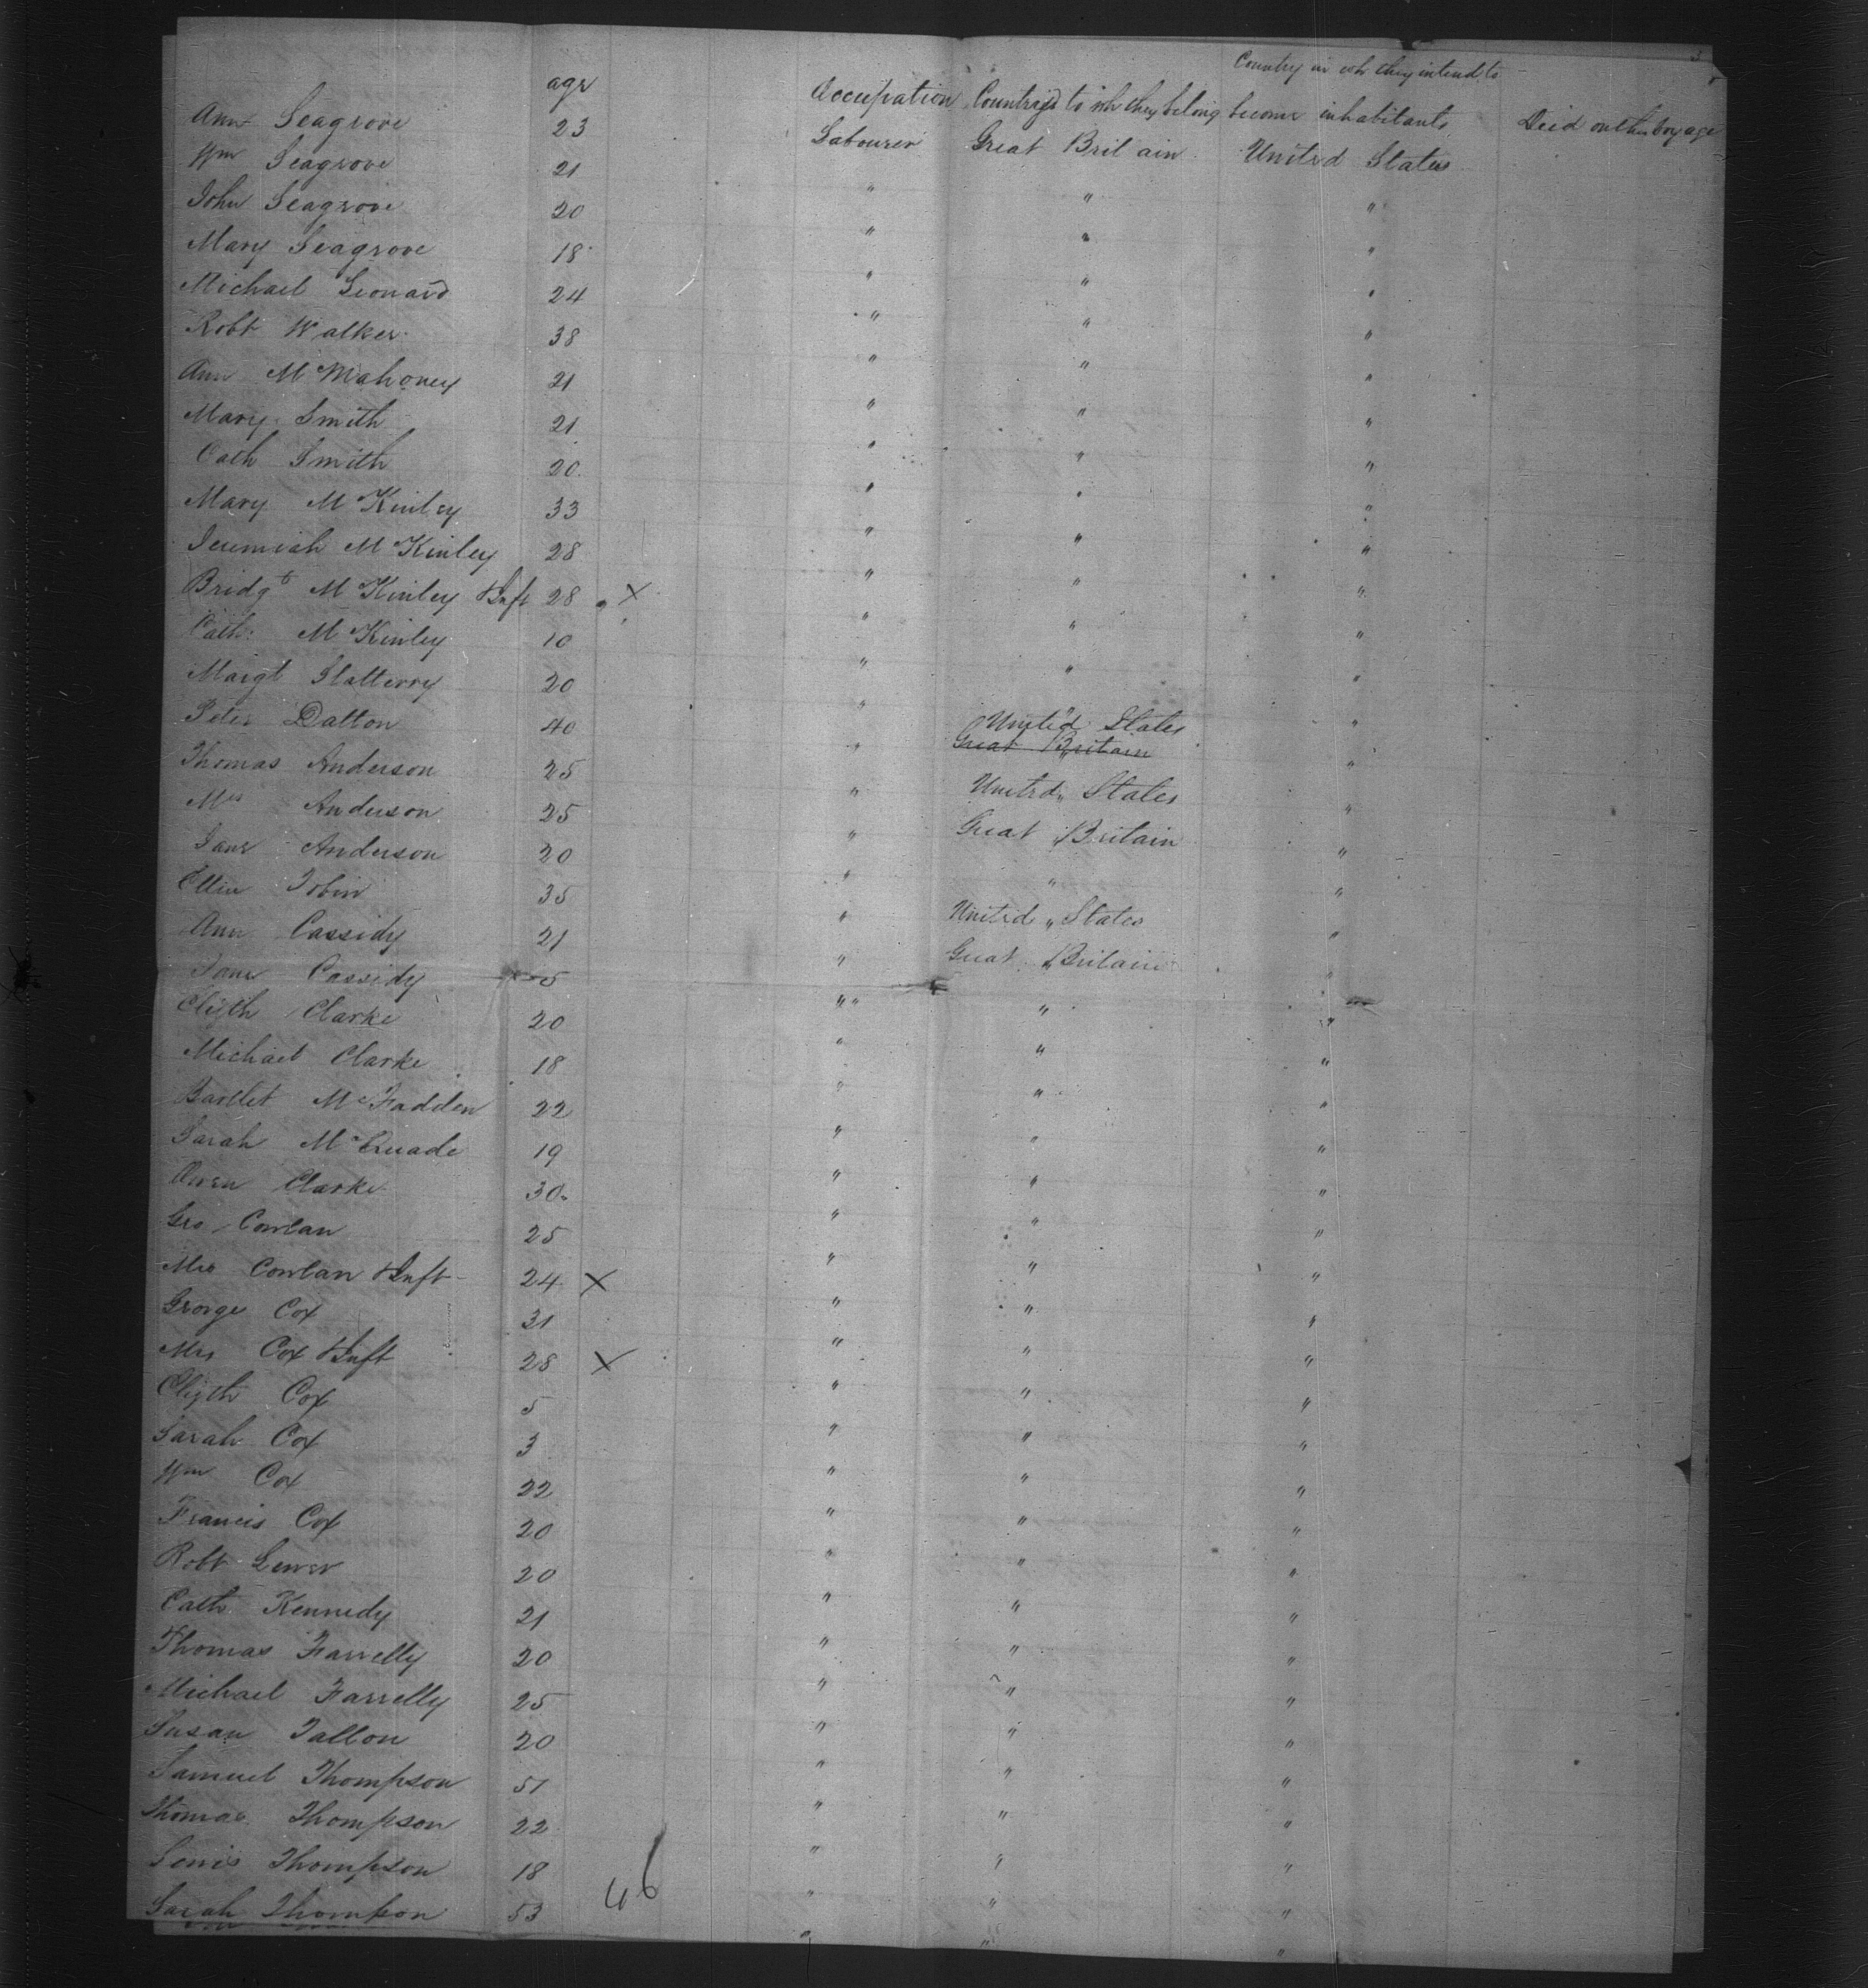 Country in wh they intend to
age Occupation Countries to wh they belong become inhabitants Died on the Voyage
Ann Seagrove 23 Labourer Great Britain United States
Wm Seagrove 21 " " "
John Seagrove 20 " " "
Mary Seagrove 18 " " "
Michael Leonard 24 " " "
Robt Walker 38 " " "
Ann McMahoney 21 " " "
Mary Smith 21 " " "
Cath Smith 20 " " "
Mary McKinley 33 " " "
Jeremiah McKinley 28 " " "
Bridgt McKinley & Inft 28 X " " "
Cath McKinley 10 " " "
Margt Slatterry 20 " " "
Peter Dalton 40 " United States "
Great Britain
Thomas Anderson 25 " United States "
Mrs Anderson 25 " Great Britain "
Jane Anderson 20 " " "
Ellin Tobin 35 " United States "
Ann Cassidy 21 " Great Britain "
Jane Cassidy 5 " " "
Elizth Clarke 20 " " "
Michael Clarke 18 " " "
Bartlet McFadden 22 " " "
Sarah McQuade 19 " " "
Owen Clarke 30 " " "
Geo Conlan 25 " " "
Mrs Conlan & Inft 24 X " " "
George Cox 31 " " "
Mrs Cox & Inft 28 X " " "
Elizth Cox 5 " " "
Sarah Cox 3 " " "
Wm Cox 22 " " "
Francis Cox 20 " " "
Robt 20 " " "
Cath Kennedy 21 " " "
Thomas Farrelly 20 " " "
Michael Farrelly 25 " " "
Susan Tallon 20 " " "
Samuel Thompson 51 " " "
Thomas Thompson 22 " " "
Thompson 18 " " "
Sarah Thompson 53 46 " " "